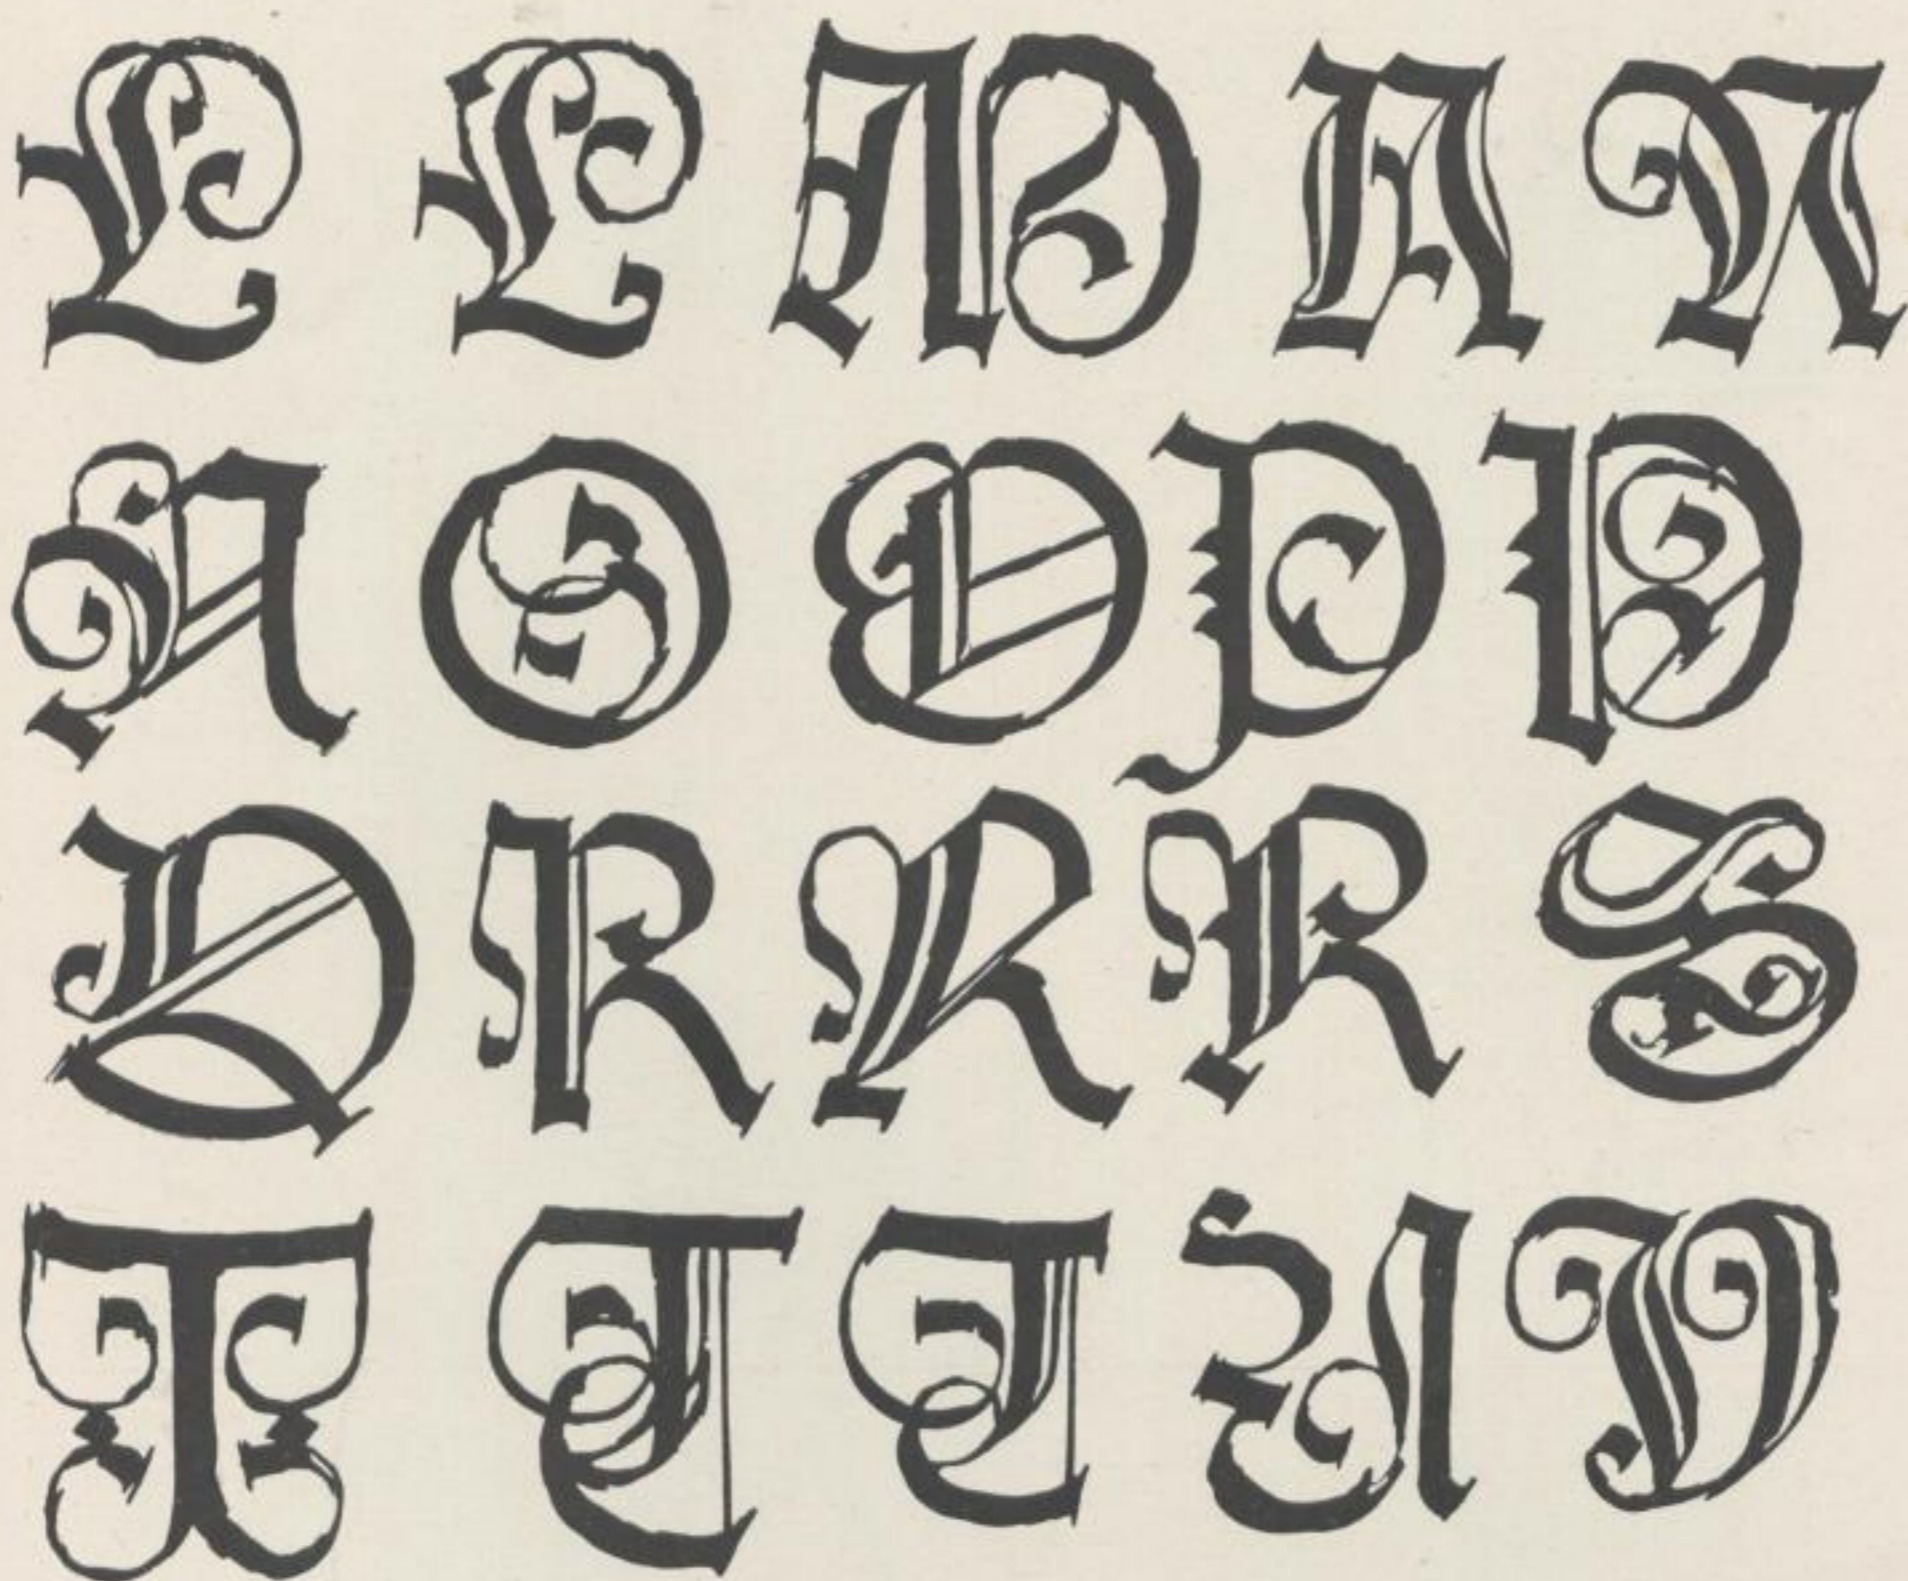 L L M N N
N O O P P
Q R R R S
T T T U V